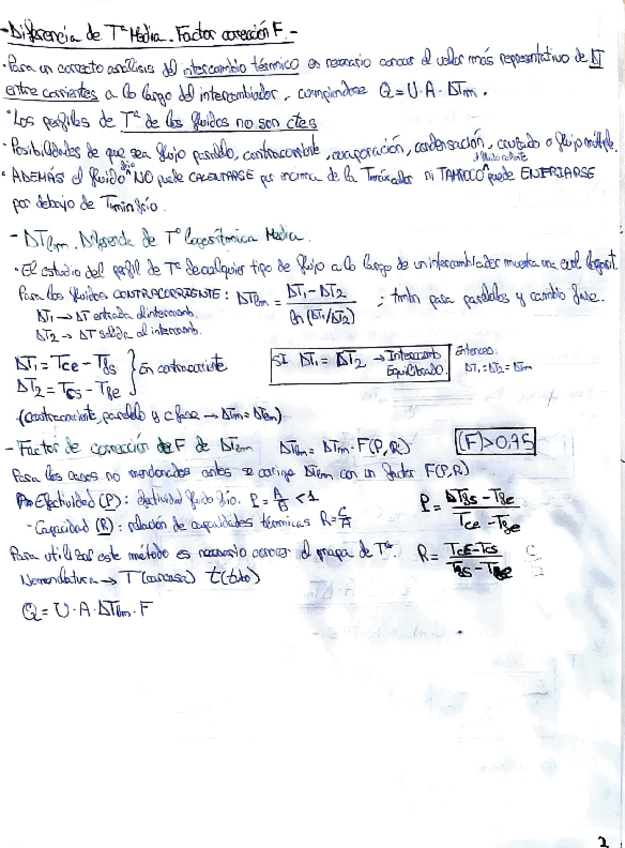 -Diferencia de Tª Media. Factor corrección F.-
· Para un correcto análisis del intercambio térmico es necesario conocer el valor más representativo de ΔT
entre corrientes a lo largo del intercambiador, cumpliendose Q = U·A·ΔTm.
· Los perfiles de Tª de los fluidos no son ctes
· Posibilidades de que sea flujo paralelo, contracorriente, evaporación, condensación, cruzado o flujo múltiple.
· ADEMÁS el fluido frío NO puede CALENTARSE por encima de la Tmáx caliente ni TAMPOCO fluido caliente puede ENFRIARSE
por debajo de Tmin frío.
- ΔTlm. Diferencia de Tª logarítmica Media.
· El estudio del perfil de Tª de cualquier tipo de flujo a lo largo de un intercambiador muestra una evol. logarít.
Para los fluidos CONTRACORRIENTE: ΔTlm = (ΔT1 - ΔT2) / (ln (ΔT1/ΔT2)) ; tmbn para paralelos y cambio fase.
ΔT1 → ΔT entrada al intercamb.
ΔT2 → ΔT salida al intercamb.
ΔT1 = Tce - Tfs
ΔT2 = Tcs - Tfe } En contracorriente
SI ΔT1 = ΔT2 → Intercamb Equilibrado.
Entonces: ΔT1 = ΔT2 = ΔTlm
(contracorriente, paralelo y c fase → ΔTm = ΔTlm)
- Factor de corrección de F de ΔTlm ΔTlm = ΔTlm · F(P,R) (F) > 0,75
Para los casos no mencionados antes se corrige ΔTlm con un factor F(P,R)
Efectividad (P): efectividad fluido frío. P = A/B < 1 P = (ΔTfs - Tfe) / (Tce - Tfe)
- Capacidad (R): relación de capacidades térmicas R = C/A
Para utilizar este método es necesario conocer el mapa de Tª. R = (TcE - Tcs) / (Tfs - Tfe)
Nomenclatura → T (carcasa) t (tubo)
Q = U·A·ΔTlm·F
2